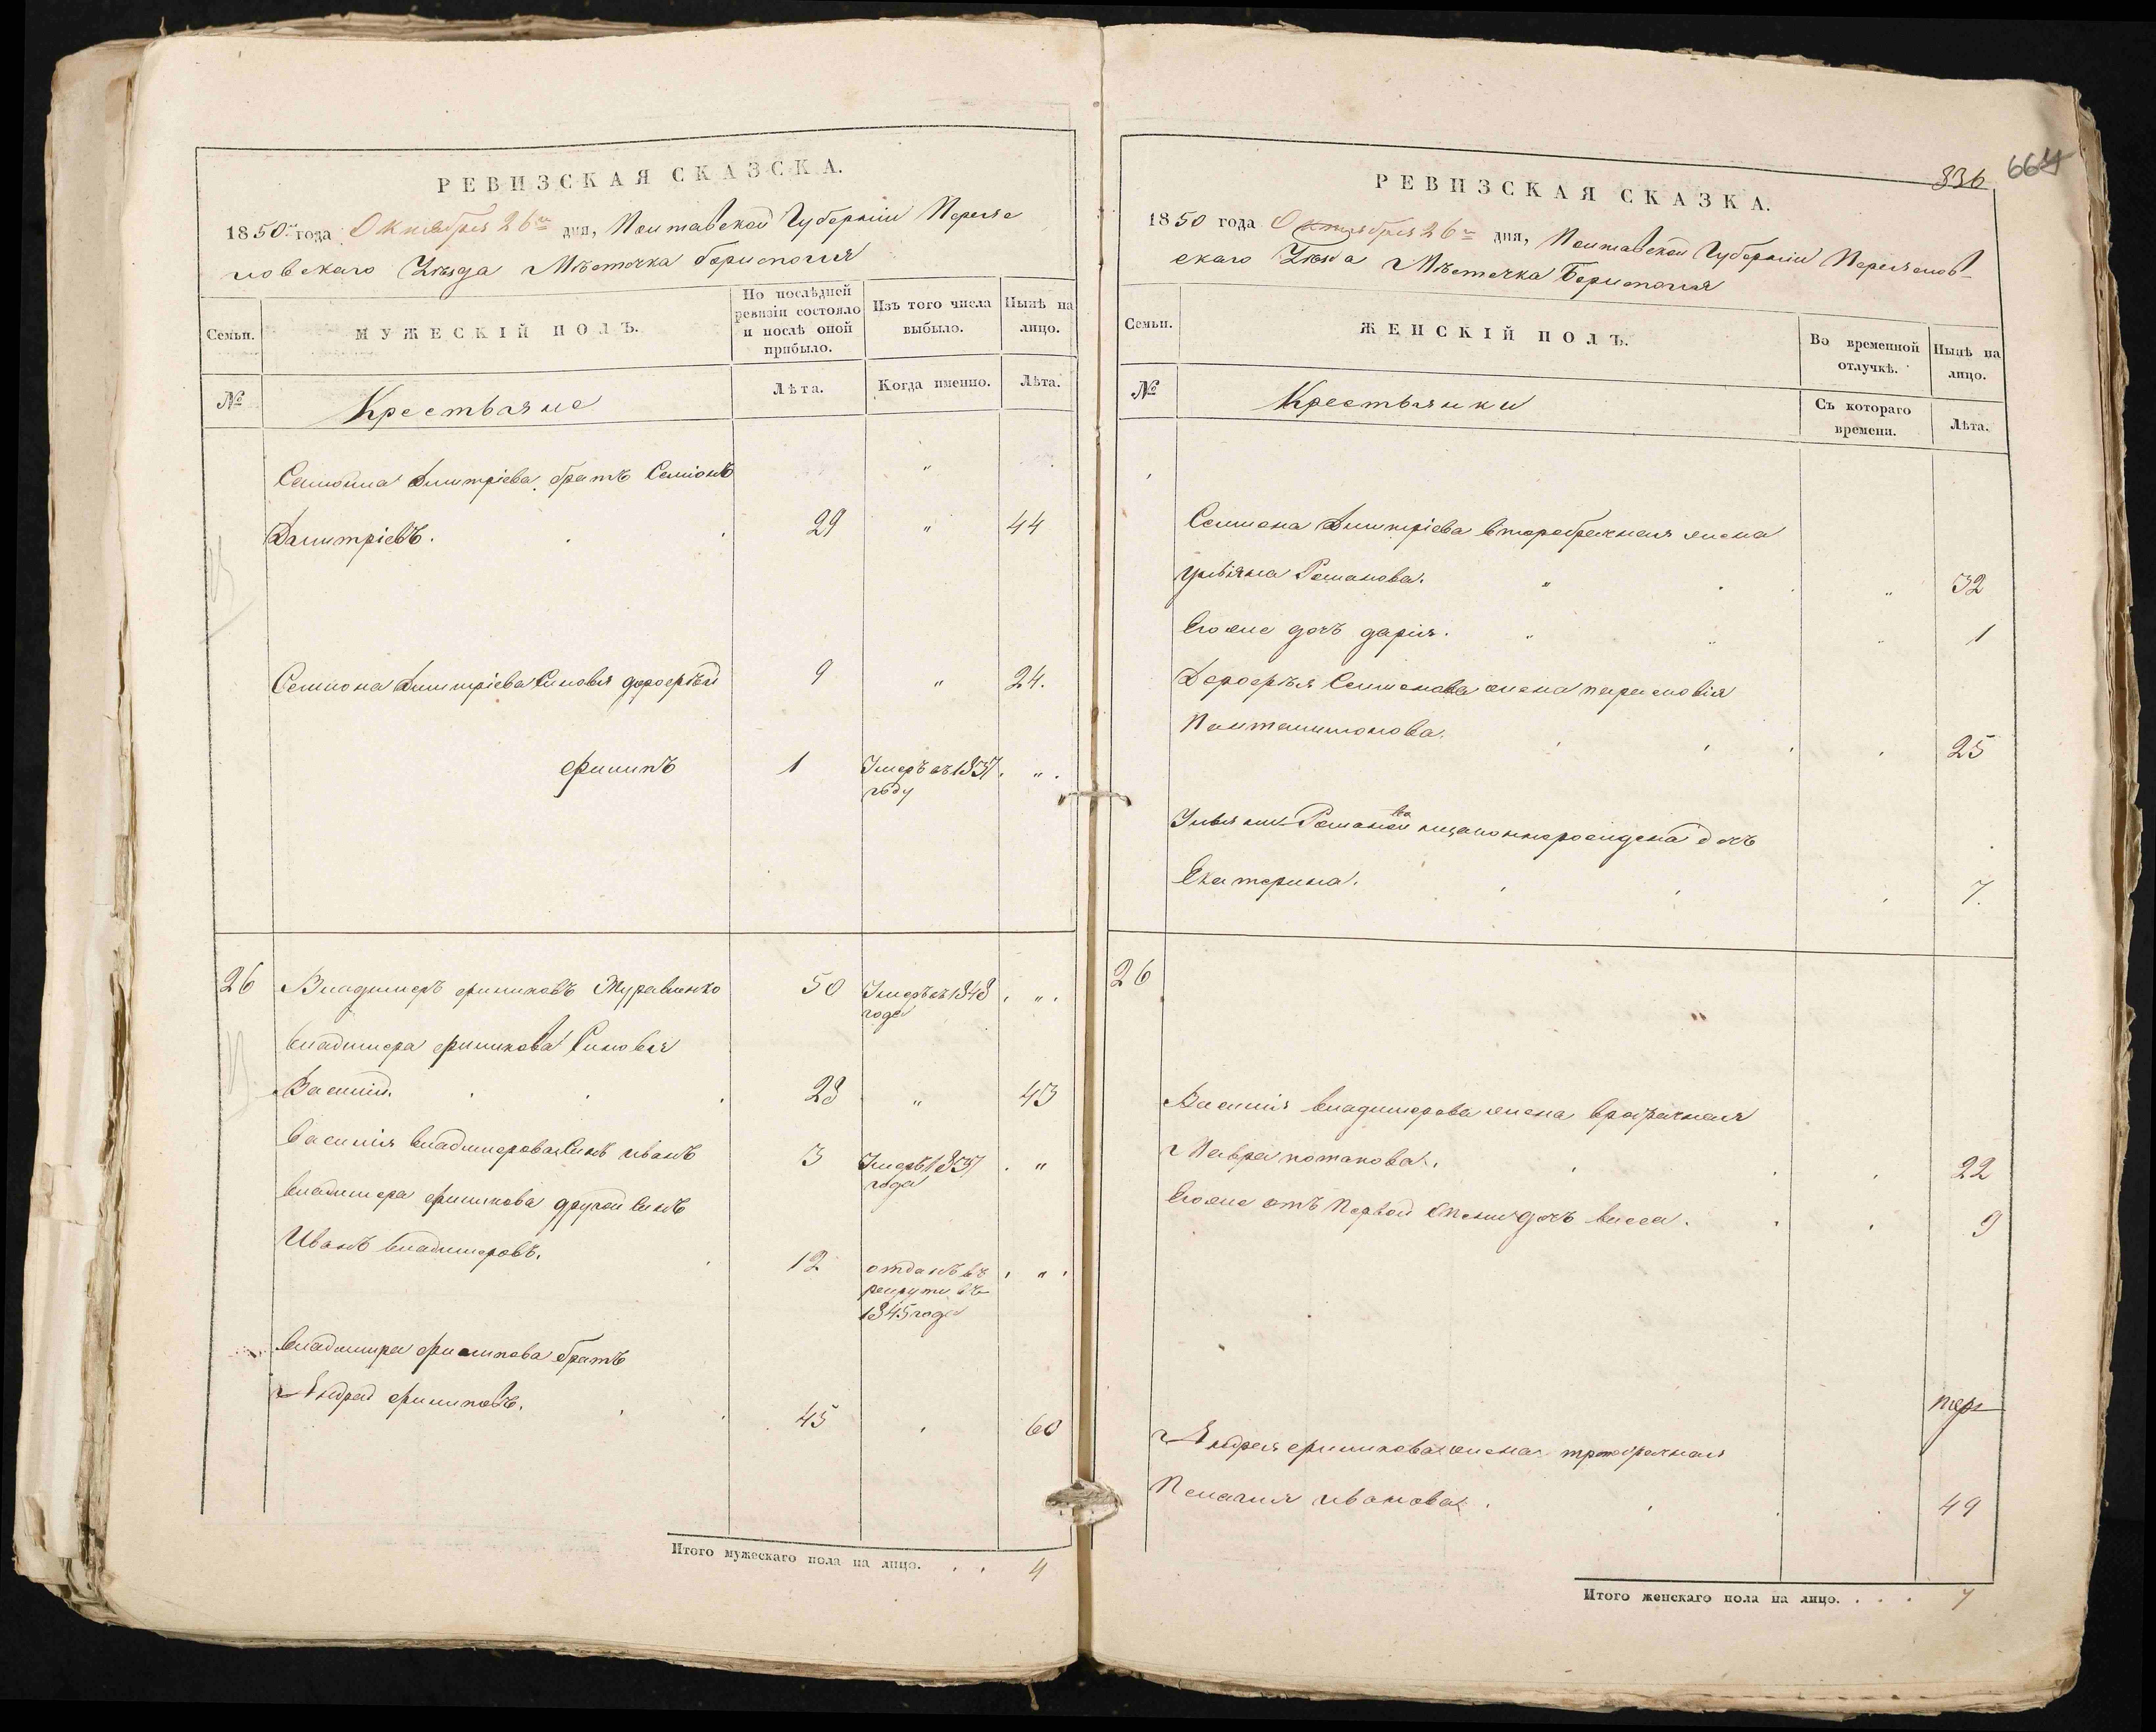 РЕВИЗСКАЯ СКАЗСКА.
1850 года Октября 26 дня, Полтавской Губерніи Переяс
ловскаго Уезда Мѣстечка борисполя
Семьи.
МУЖЕСКІЙ ПОЛЪ.
По послѣдней ревизіи состояло и послѣ оной прибыло.
Изъ того числа выбыло.
Нынѣ на лицо.
№
Крестьяне
Лѣта.
Когда именно.
Лѣта.
Семиона Дмитріева братъ Семіонъ "
Дмитріевъ. 29 " 44
Семиона Дмитріева Синовья дорофѣй 9 " 24.
филипъ 1 Умеръ въ 1837 "
году
26 Владимеръ филиповъ Журавленко 50 Умеръ въ 1848 "
года
владимера филипова Синовья
Василий 28 " 43
Василия владимерова Синъ иванъ 3 Умеръ 1837 "
года
владимера филипова другой синъ
Иванъ владимеровъ. 12 отданъ въ "
рекрути въ
1845 года
владимира филипова братъ
Андрей филиповъ. 45 60
Итого мужескаго пола на лицо. 4
336 664
РЕВИЗСКАЯ СКАЗКА.
1850 года Октября 26 дня, Полтавской Губерніи Переяслов-
скаго Уезда Мѣстечка Борисполя
Семьи.
ЖЕНСКІЙ ПОЛЪ.
Во временной отлучкѣ.
Нынѣ на лицо.
№
Крестьянки
Съ котораго времени.
Лѣта.
Семиона Дмитріева второбрачная жена
Ульяна Романова. " " 32
Егоже дочъ дария. " " 1
Дорофѣя Семионова жена парасковія
Понталимонова. 25
Ульяни Романовой незаконнорожденна дочъ
Екатерина. 7.
26
Василия владимерова жена
Мавра потапова. 22
Егоже отъ Первой Жени дочъ васса. 9
Андрея филипова жена третобрачная
Пелагия иванова. 49
Итого женскаго пола на лицо. 7